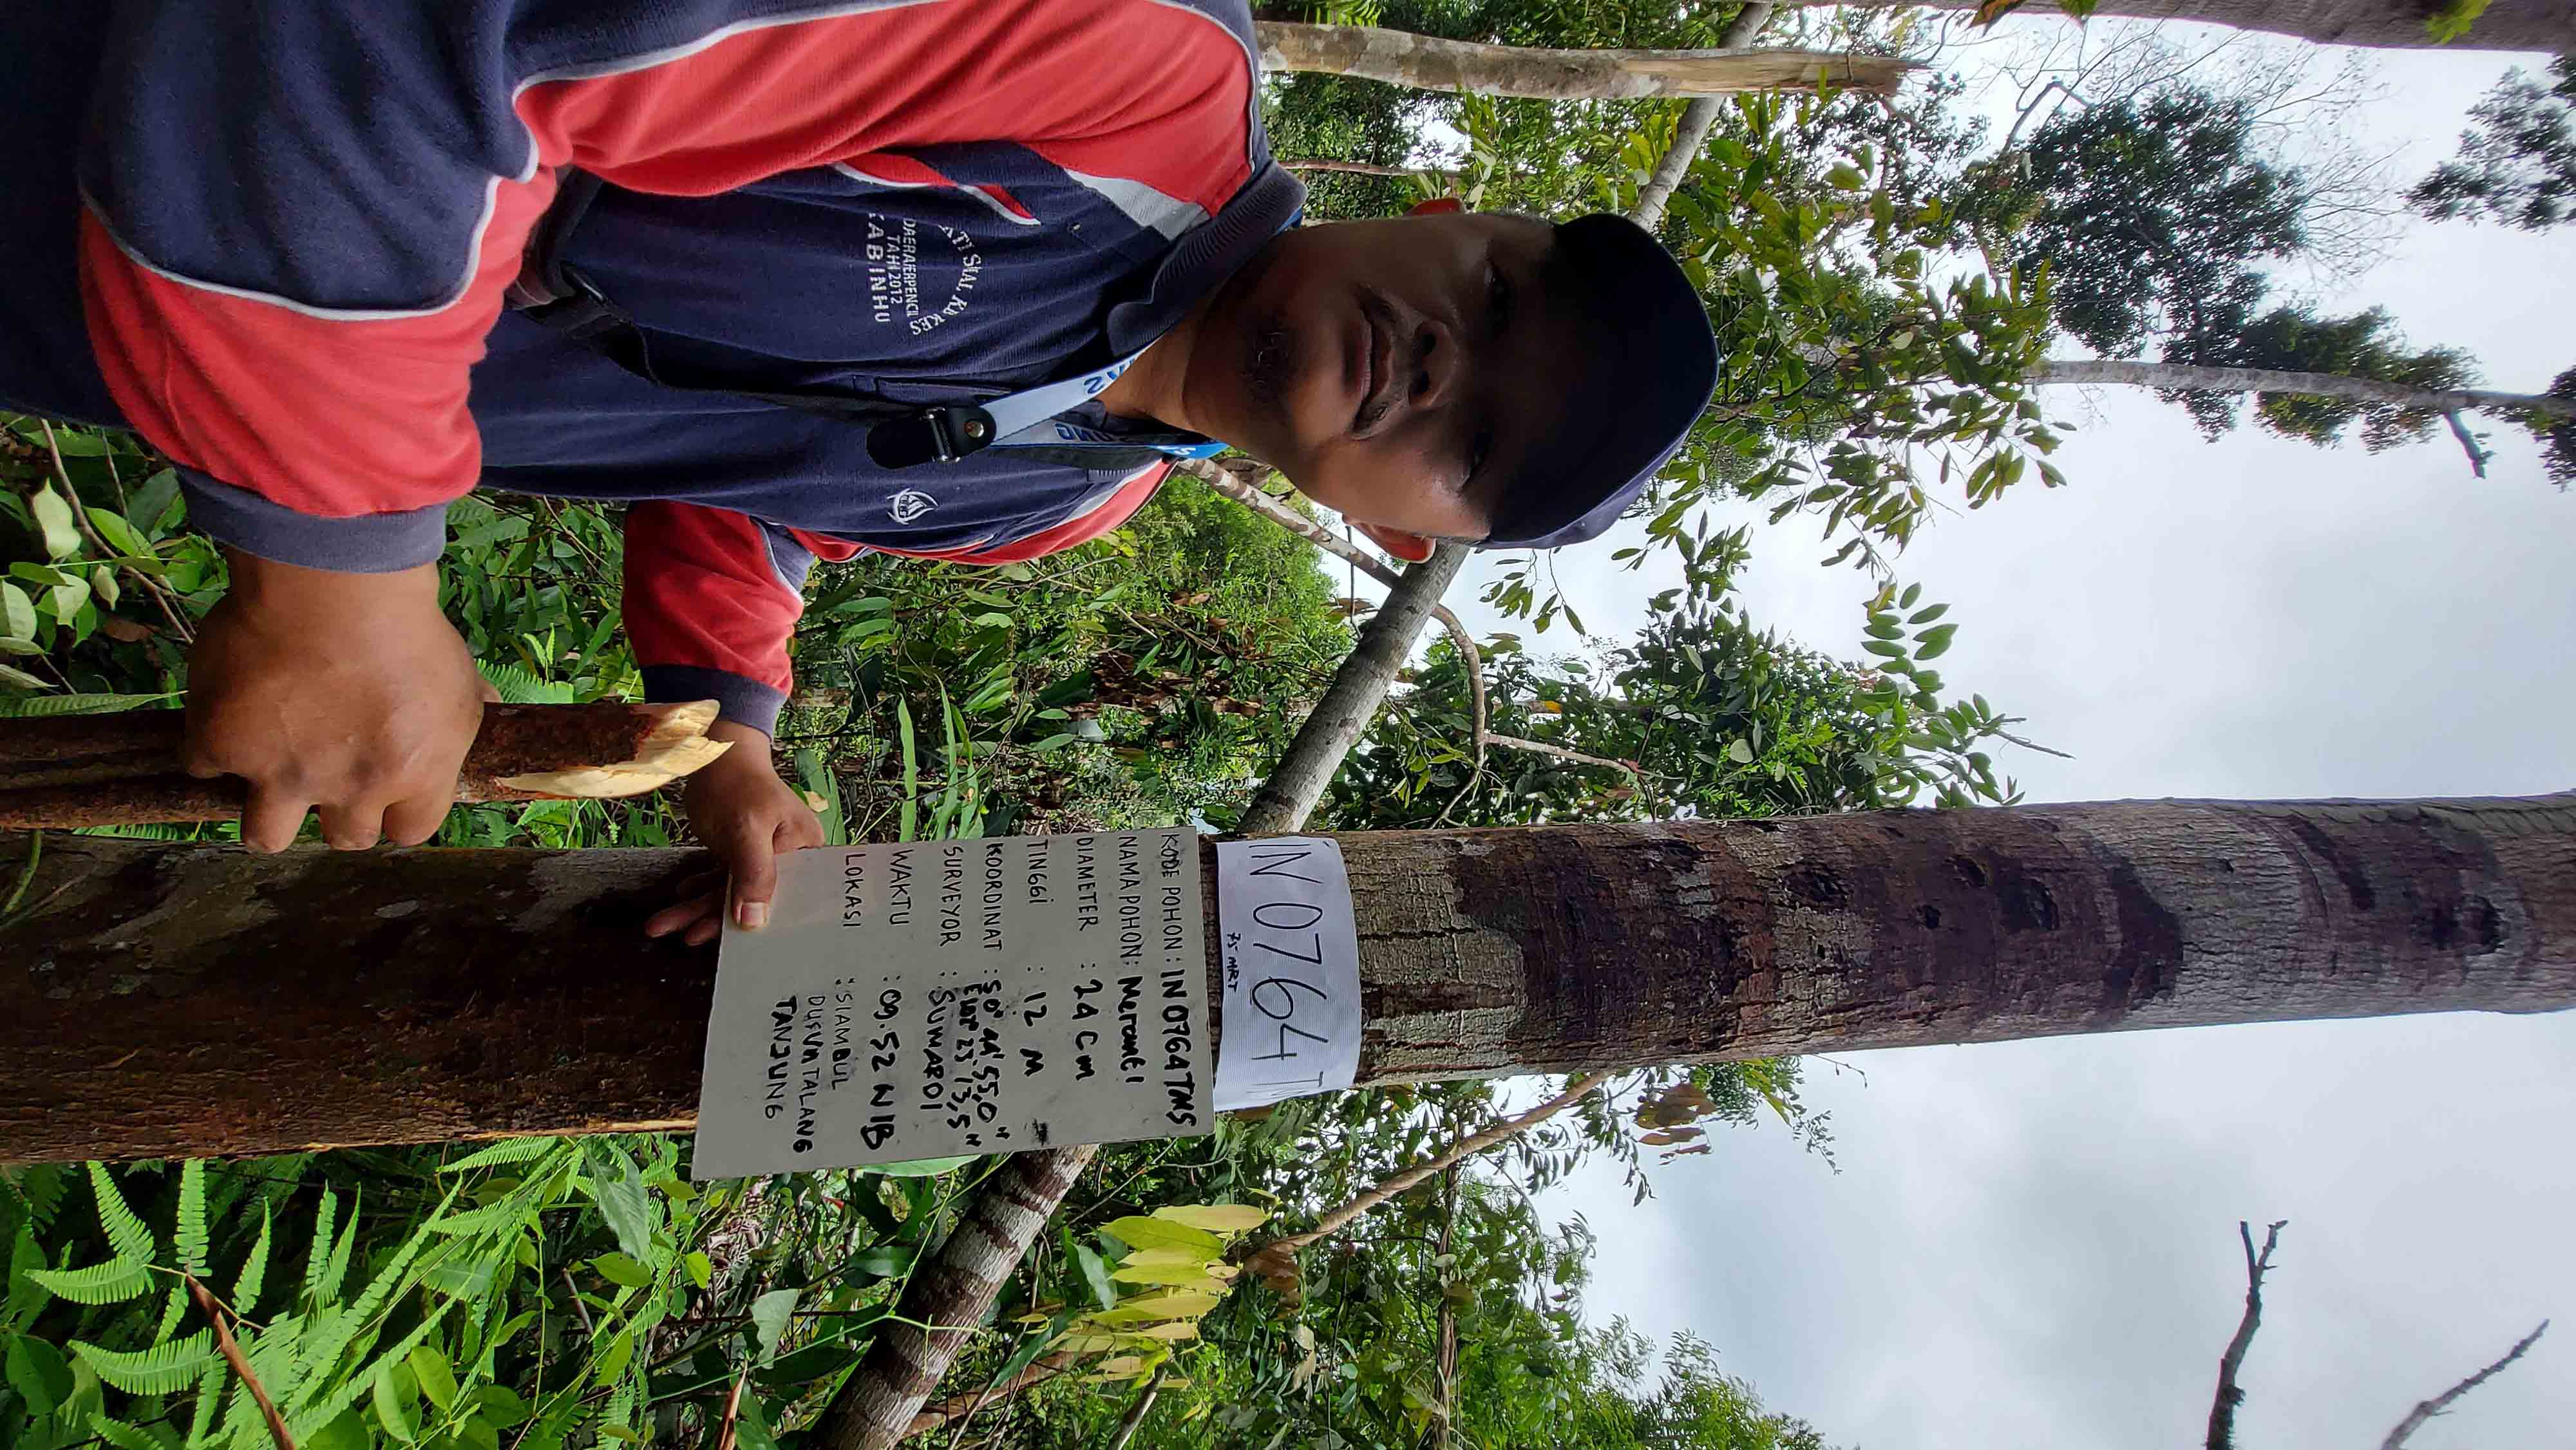 IN 0764 TM
75 MRT
KODE POHON : IN 0764 TMS
NAMA POHON : Meranti
DIAMETER : 24 Cm
TINGGi : 12 M
KOORDINAT : S 0° 44' 55,0"
E 102° 23' 13,5"
SURVEYOR : SUMARDI
WAKTU : 09.52 WIB
LOKASI : SIAMBUL
DUSUN TALANG
TANJUNG
KAB INHU